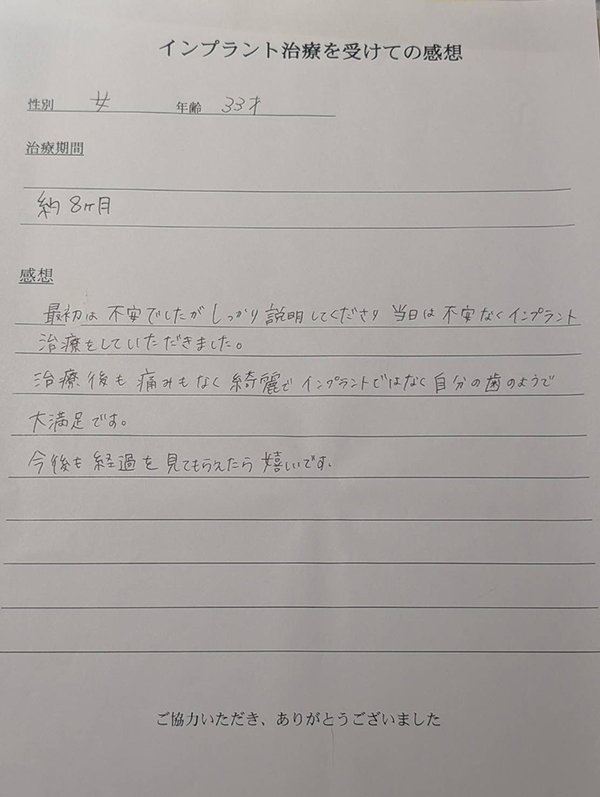 インプラント治療を受けての感想
性別 女 年齢 33才
治療期間
約8ヶ月
感想
最初は不安でしたがしっかり説明してくださり当日は不安なくインプラント
治療をしていただきました。
治療後も痛みもなく綺麗でインプラントではなく自分の歯のようで
大満足です。
今後も経過を見てもらえたら嬉しいです。
ご協力いただき、ありがとうございました